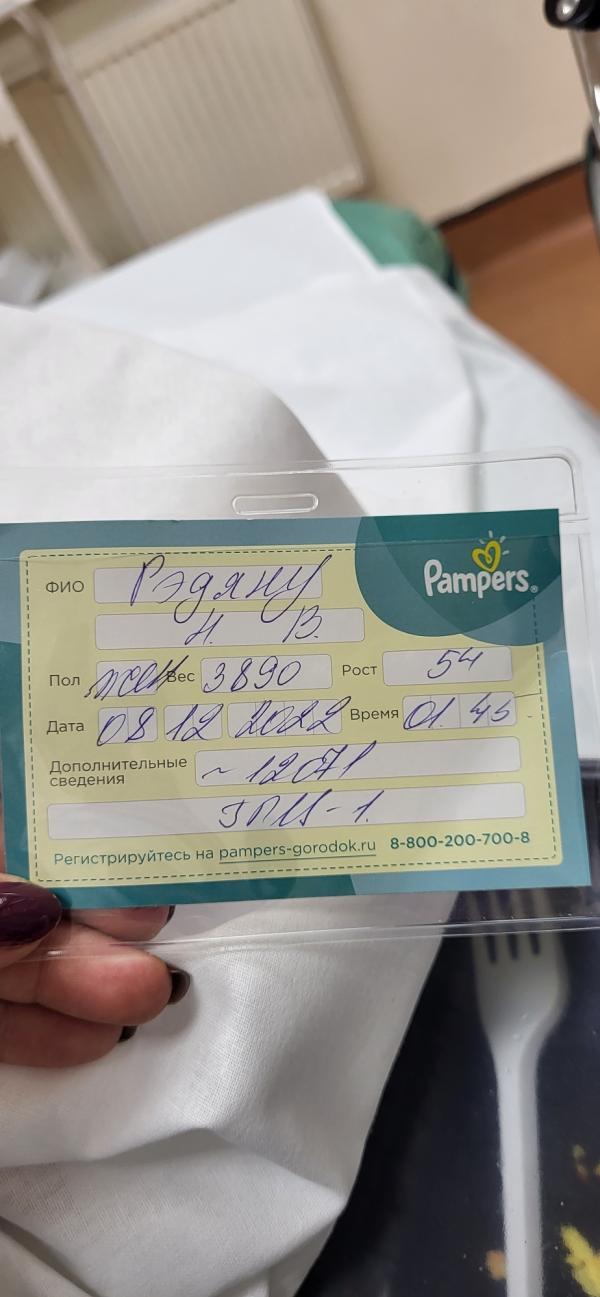 Pampers
ФИО Рэдяну
Н. В.
Пол жен Вес 3890 Рост 54
Дата 08 12 2022 Время 01 45
Дополнительные сведения ~ 12071
Регистрируйтесь на pampers-gorodok.ru 8-800-200-700-8